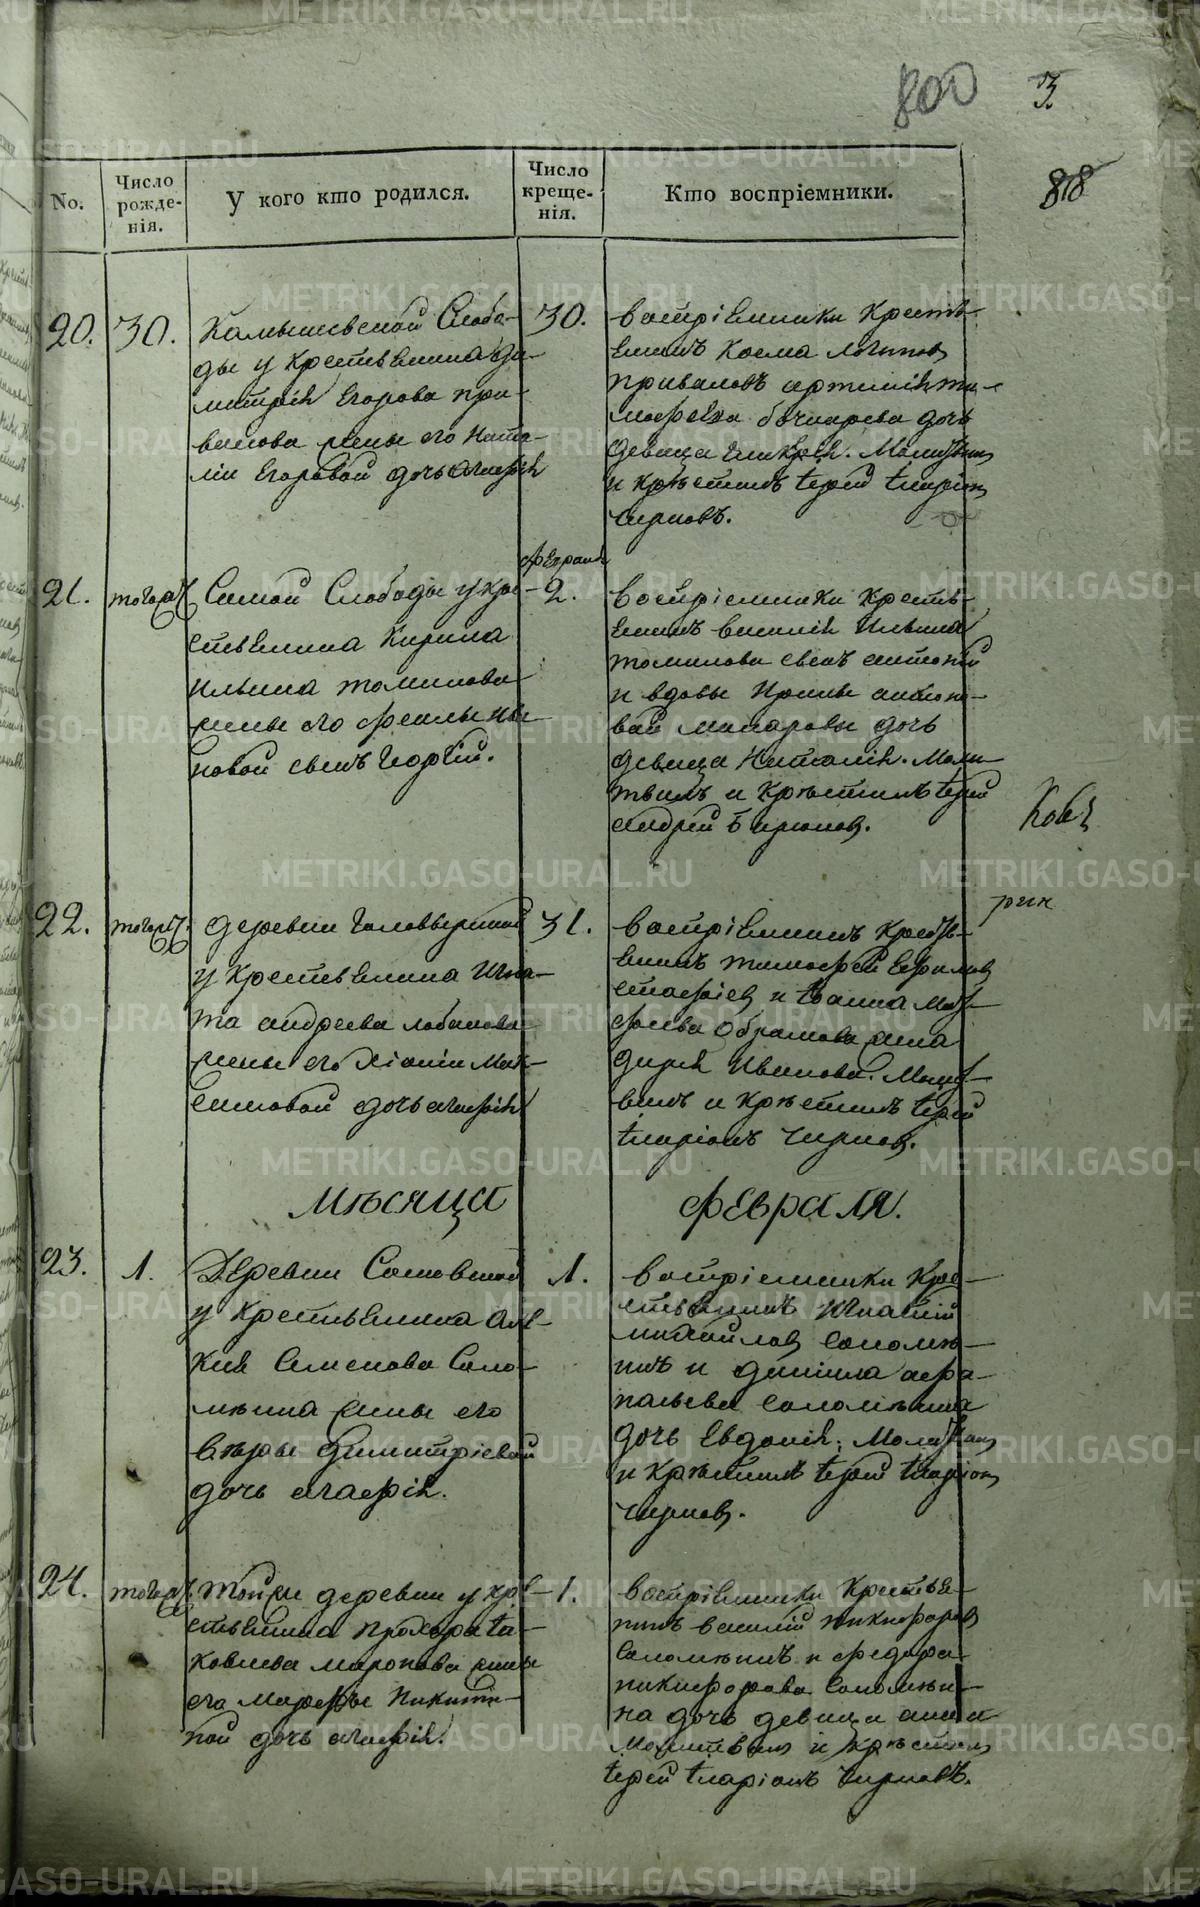 800 3.
818
No.
Число рожде-нія.
У кого кто родился.
Число креще-нія.
Кто воспріемники.
20. 30.
Камышевской Слобо-
ды у Крестьянина Ди-
митрія Егорова При-
валова жены его Ната-
ліи Егоровой дочь Агафія
30.
Воспріемники Крестья-
нинъ Косма Логиновъ
Приваловъ
мофеева дочь
девица Молитвилъ
и Крѣстилъ Іерей Іларіонъ
Чирковъ.
21. тогожъ
Самой Слободы у кре-
стьянина Кирила
Ильина Томилова
жены его
новой сынъ Георгій.
Февраля
2.
Воспріемники Крестья-
нинъ Василія Ильина
Томилова сынъ Антоній
и вдовы Ирины Антоно-
вой Макаровы дочь
девица Наталія. Моли-
твилъ и Крѣстилъ Іерей
Андрей Бирюковъ.
22. тогожъ.
Деревни
у Крестьянина Игна-
та Андреева Лобанова
жены его Ксіоніи Мак-
симовой дочь Агафія
31.
Воспріемникъ Крестья-
нинъ Тимофей Ефимовъ
и Іоанна
Абрамова жена
Дарья Иванова. Молит-
вилъ и Крѣстилъ Іерей
Іларіонъ Чирковъ.
Мѣсяца Февраля.
23. 1.
Деревни Сосновской
у Крестьянина Але-
кѣя Семенова Соло-
мѣина жены его
Вѣры Димитріевой
дочь Агафія.
1.
Воспріемники Кре-
стьянинъ Игнатій
Михайловъ Соломѣ-
инъ и Даніила Афа-
насьева Соломѣина
дочь Евдокія. Молитвилъ
и Крѣстилъ Іерей Іларіонъ
Чирковъ.
24. тогожъ
Той же деревни у Кре-
стьянина Прохора Іа-
ковлева Миронова жены
его Марфы Никити-
ной дочь Агафія.
1.
Воспріемники Крестья-
нинъ Василій Никифоровъ
Соломѣинъ и Федора
Никифорова Соломѣи-
на дочь девица Анна
Молитвилъ и Крѣстилъ
Іерей Іларіонъ Чирковъ.
METRIKI.GASO-URAL.RU